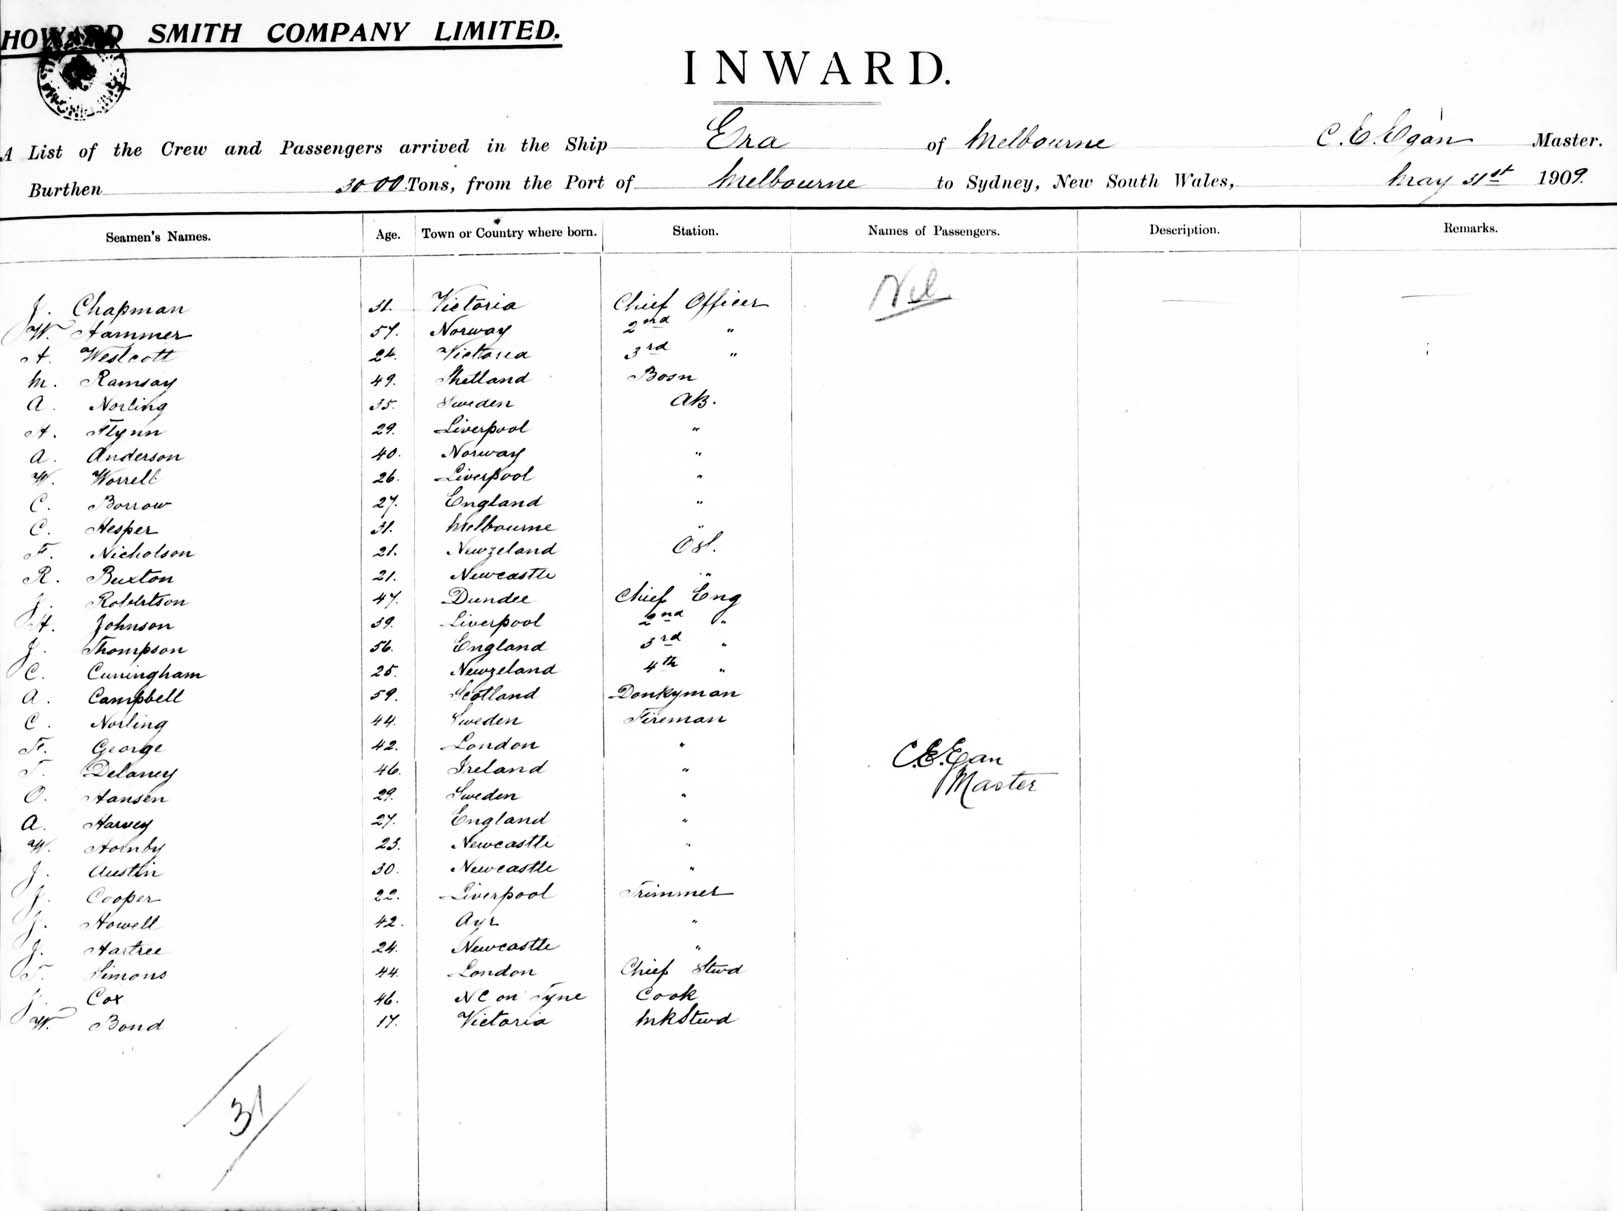 HOWARD SMITH COMPANY LIMITED.
INWARD.
A List of the Crew and Passengers arrived in the Ship Era of Melbourne C. E. Egan Master.
Burthen 3000 Tons, from the Port of Melbourne to Sydney, New South Wales, May 31st 1909.
Seamen's Names. Age. Town or Country where born. Station. Names of Passengers. Description. Remarks.
Nil
J. Chapman 31. Victoria Chief Officer
W. Hammer 57. Norway 2nd "
H. Westcott 24. Victoria 3rd "
M. Ramsay 49. Shetland Bosn
A. Norling 35. Sweden AB.
H. Flynn 29. Liverpool "
A. Anderson 40. Norway "
W. Worrell 26. Liverpool "
C. Borrow 27. England "
C. Hesper 31. Melbourne "
F. Nicholson 21. Newzeland OS.
R. Buxton 21. Newcastle "
J. Robertson 47. Dundee Chief Eng
H. Johnson 39. Liverpool 2nd "
J. Thompson 56. England 3rd "
C. Cuningham 25. Newzeland 4th "
A. Campbell 59. Scotland Donkyman
C. Norling 44. Sweden Fireman
F. George 42. London "
T. Delaney 46. Ireland "
O. Hansen 29. Sweden "
A. Harvey 27. England "
W. Hornby 23. Newcastle "
J. Austin 30. Newcastle "
J. Cooper 22. Liverpool Trimmer
J. Howell 42. Ayr "
J. Hartree 24. Newcastle "
T. Simons 44. London Chief Stwd
J. Cox 46. NC on Tyne Cook
W. Bond 17. Victoria MRStwd
C.E.Egan
Master
31